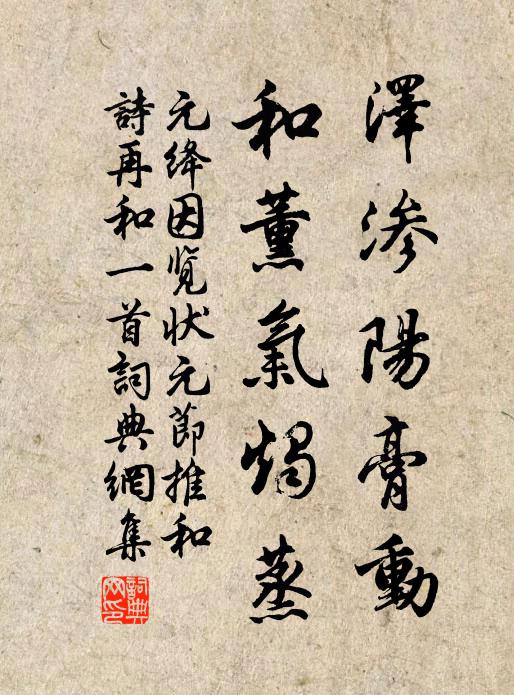 澤滲陽膏動
和薰氣燭蒸
元絳因览状元節推和
詩再和一首詞典網集
詞典
网印